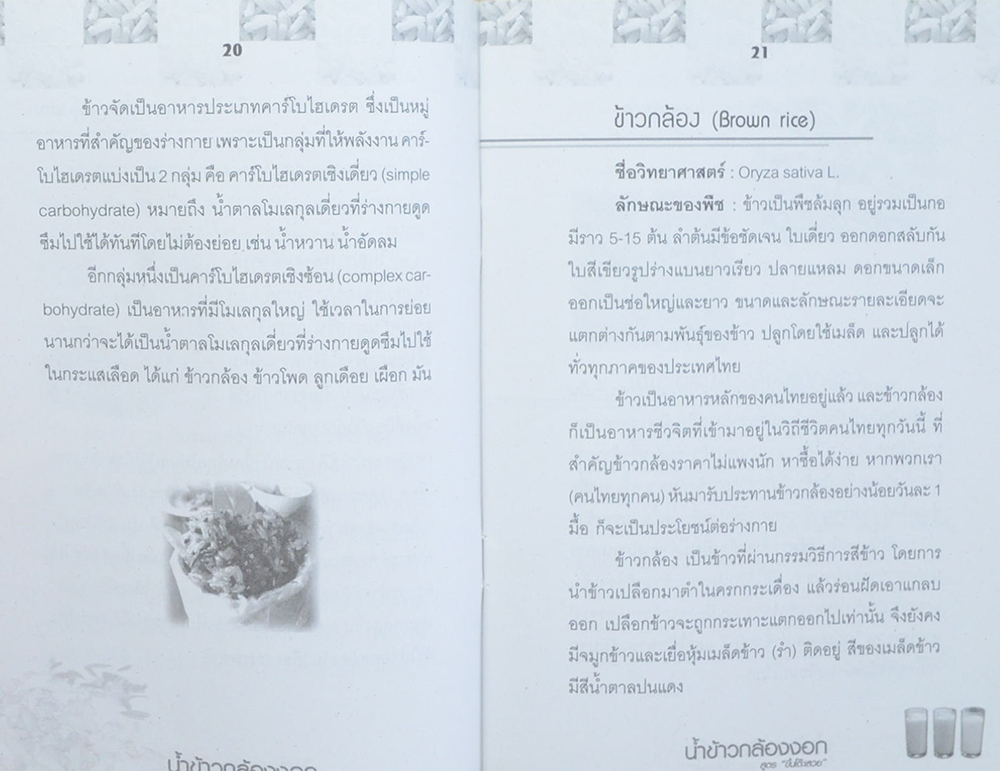 20
ข้าวจัดเป็นอาหารประเภทคาร์โบไฮเดรต ซึ่งเป็นหมู่
อาหารที่สำคัญของร่างกาย เพราะเป็นกลุ่มที่ให้พลังงาน คาร์-
โบไฮเดรตแบ่งเป็น 2 กลุ่ม คือ คาร์โบไฮเดรตเชิงเดี่ยว (simple
carbohydrate) หมายถึง น้ำตาลโมเลกุลเดี่ยวที่ร่างกายดูด
ซึมไปใช้ได้ทันทีโดยไม่ต้องย่อย เช่น น้ำหวาน น้ำอัดลม
อีกกลุ่มหนึ่งเป็นคาร์โบไฮเดรตเชิงซ้อน (complex car-
bohydrate) เป็นอาหารที่มีโมเลกุลใหญ่ ใช้เวลาในการย่อย
นานกว่าจะได้เป็นน้ำตาลโมเลกุลเดี่ยวที่ร่างกายดูดซึมไปใช้
ในกระแสเลือด ได้แก่ ข้าวกล้อง ข้าวโพด ลูกเดือย เผือก มัน
น้ำข้าวกล้องงอก
21
ข้าวกล้อง (Brown rice)
ชื่อวิทยาศาสตร์ : Oryza sativa L.
ลักษณะของพืช : ข้าวเป็นพืชล้มลุก อยู่รวมเป็นกอ
มีราว 5-15 ต้น ลำต้นมีข้อชัดเจน ใบเดี่ยว ออกดอกสลับกัน
ใบสีเขียวรูปร่างแบนยาวเรียว ปลายแหลม ดอกขนาดเล็ก
ออกเป็นช่อใหญ่และยาว ขนาดและลักษณะรายละเอียดจะ
แตกต่างกันตามพันธุ์ของข้าว ปลูกโดยใช้เมล็ด และปลูกได้
ทั่วทุกภาคของประเทศไทย
ข้าวเป็นอาหารหลักของคนไทยอยู่แล้ว และข้าวกล้อง
ก็เป็นอาหารชีวจิตที่เข้ามาอยู่ในวิถีชีวิตคนไทยทุกวันนี้ ที่
สำคัญข้าวกล้องราคาไม่แพงนัก หาซื้อได้ง่าย หากพวกเรา
(คนไทยทุกคน) หันมารับประทานข้าวกล้องอย่างน้อยวันละ 1
มื้อ ก็จะเป็นประโยชน์ต่อร่างกาย
ข้าวกล้อง เป็นข้าวที่ผ่านกรรมวิธีการสีข้าว โดยการ
นำข้าวเปลือกมาตำในครกกระเดื่อง แล้วร่อนฝัดเอาแกลบ
ออก เปลือกข้าวจะถูกกระเทาะแตกออกไปเท่านั้น จึงยังคง
มีจมูกข้าวและเยื่อหุ้มเมล็ดข้าว (รำ) ติดอยู่ สีของเมล็ดข้าว
มีสีน้ำตาลปนแดง
น้ำข้าวกล้องงอก
สูตร